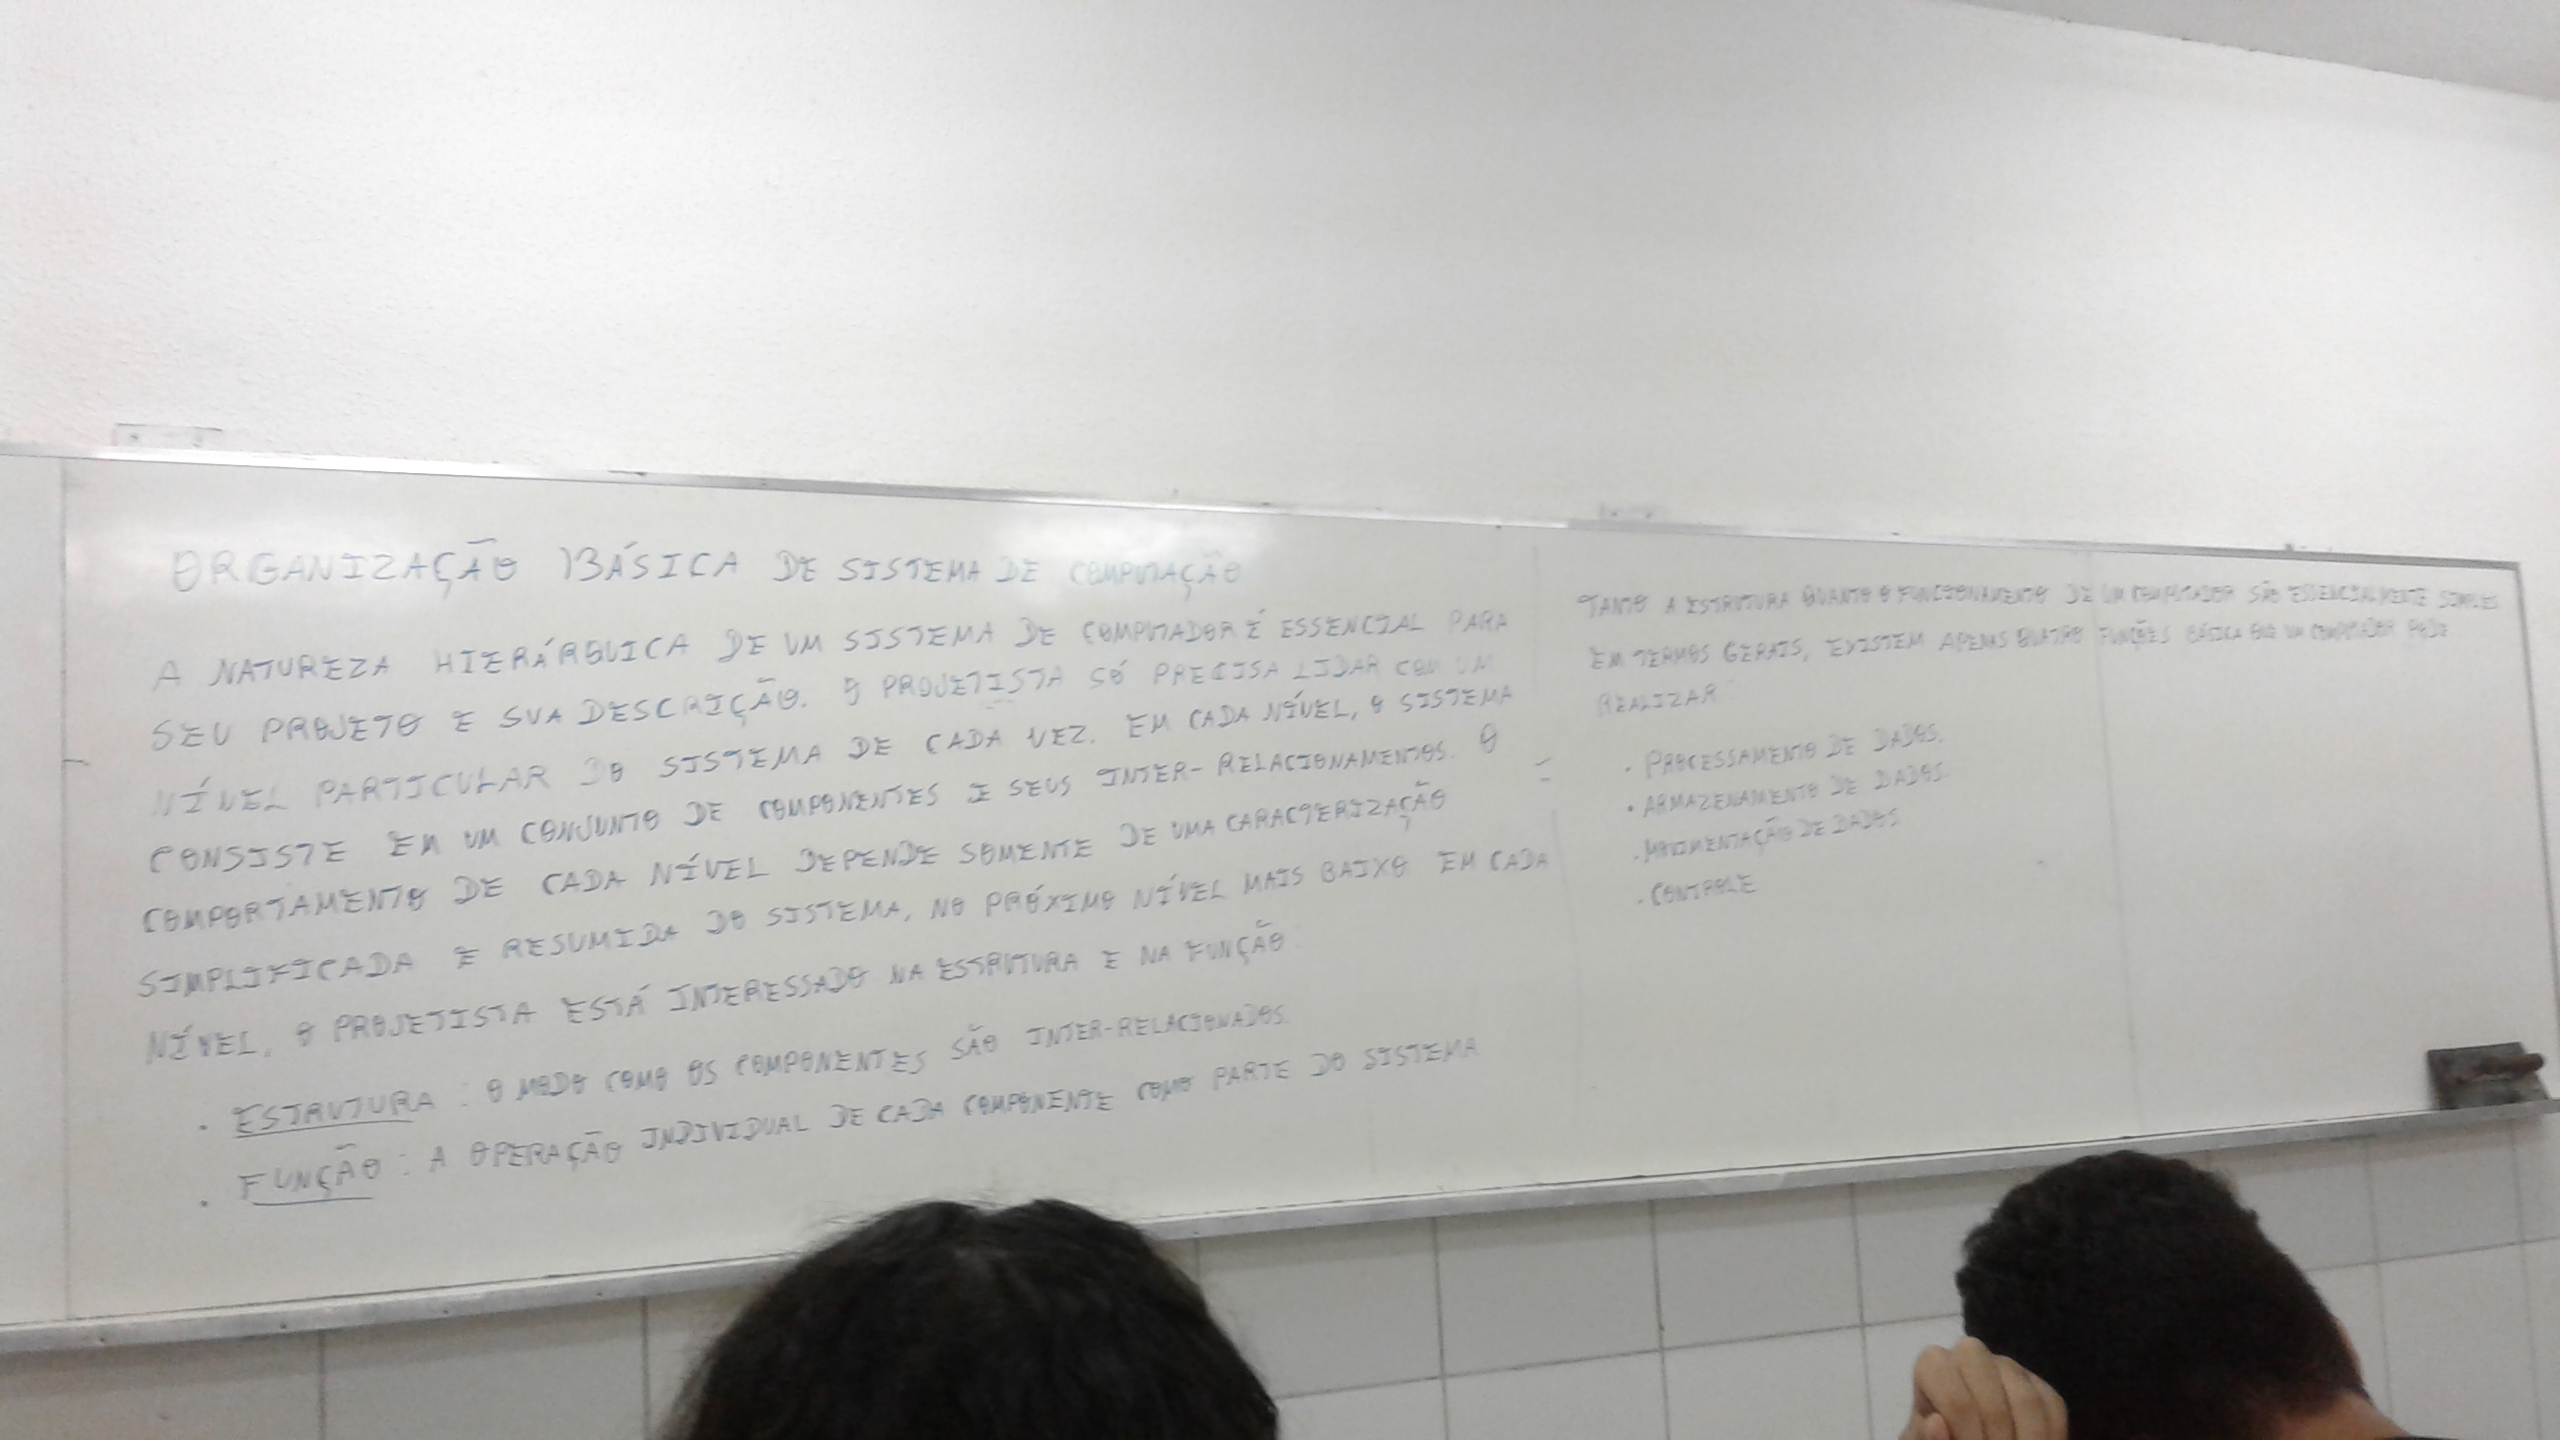 ORGANIZAÇÃO BÁSICA DE SISTEMA DE COMPUTAÇÃO
A NATUREZA HIERÁRQUICA DE UM SISTEMA DE COMPUTADOR É ESSENCIAL PARA
SEU PROJETO E SUA DESCRIÇÃO. O PROJETISTA SÓ PRECISA LIDAR COM UM
NÍVEL PARTICULAR DO SISTEMA DE CADA VEZ. EM CADA NÍVEL, O SISTEMA
CONSISTE EM UM CONJUNTO DE COMPONENTES E SEUS INTER-RELACIONAMENTOS. O
COMPORTAMENTO DE CADA NÍVEL DEPENDE SOMENTE DE UMA CARACTERIZAÇÃO
SIMPLIFICADA E RESUMIDA DO SISTEMA, NO PRÓXIMO NÍVEL MAIS BAIXO EM CADA
NÍVEL, O PROJETISTA ESTÁ INTERESSADO NA ESTRUTURA E NA FUNÇÃO.
. ESTRUTURA : O MODO COMO OS COMPONENTES SÃO INTER-RELACIONADOS.
. FUNÇÃO : A OPERAÇÃO INDIVIDUAL DE CADA COMPONENTE COMO PARTE DO SISTEMA
TANTO A ESTRUTURA QUANTO O FUNCIONAMENTO DE UM COMPUTADOR SÃO ESSENCIALMENTE SIMPLES
EM TERMOS GERAIS, EXISTEM APENAS QUATRO FUNÇÕES BÁSICA QUE UM COMPUTADOR PODE
REALIZAR
. PROCESSAMENTO DE DADOS.
. ARMAZENAMENTO DE DADOS.
. MOVIMENTAÇÃO DE DADOS
. CONTROLE